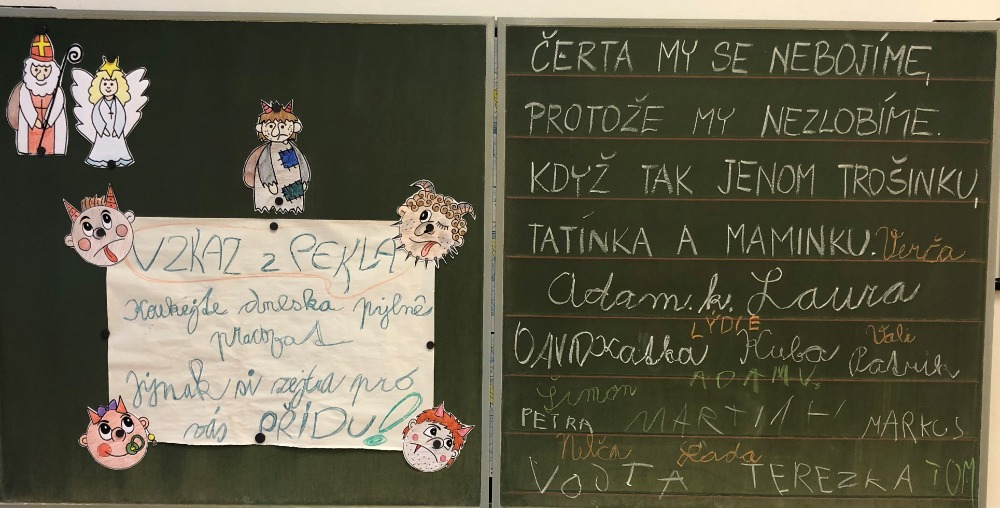 VZKAZ z PEKLA
Koukejte dneska pilně
pracovat
Jinak si zejtra pro
vás PŘÍDU!
ČERTA MY SE NEBOJÍME,
PROTOŽE MY NEZLOBÍME.
KDYŽ TAK JENOM TROŠINKU,
TATÍNKA A MAMINKU. Verča
Adam.k. Laura
LÝDIE Vali
DAVID Kuba Patrik
Šimon ADAM V.
PETRA MARTIN H MARKUS
Nelča Láďa
VOJTA TEREZKA TOM